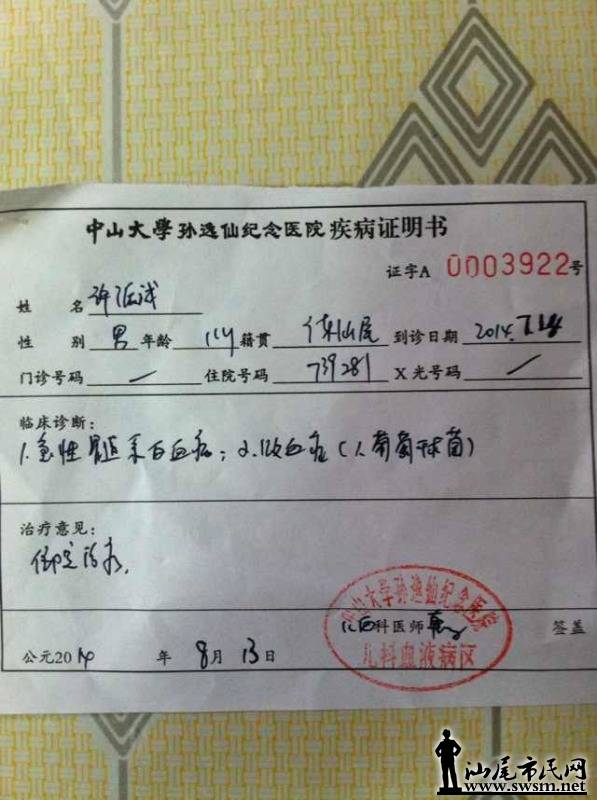 中山大學孙逸仙纪念医院 疾病证明书
证字A 0003922号
姓 名 许
性 别 男 年龄 11y 籍贯 广东汕尾 到诊日期 2014.7.14
门诊号码 / 住院号码 739281 X光号码 /
临床诊断:
1.急性髓系白血病; 2.败血症(人葡萄球菌)
治疗意见:
住院治疗.
儿科医师 签盖
中山大学孙逸仙纪念医院
儿科血液病区
公元2014 年 8月 13日
汕尾市民网
www.swsm.net